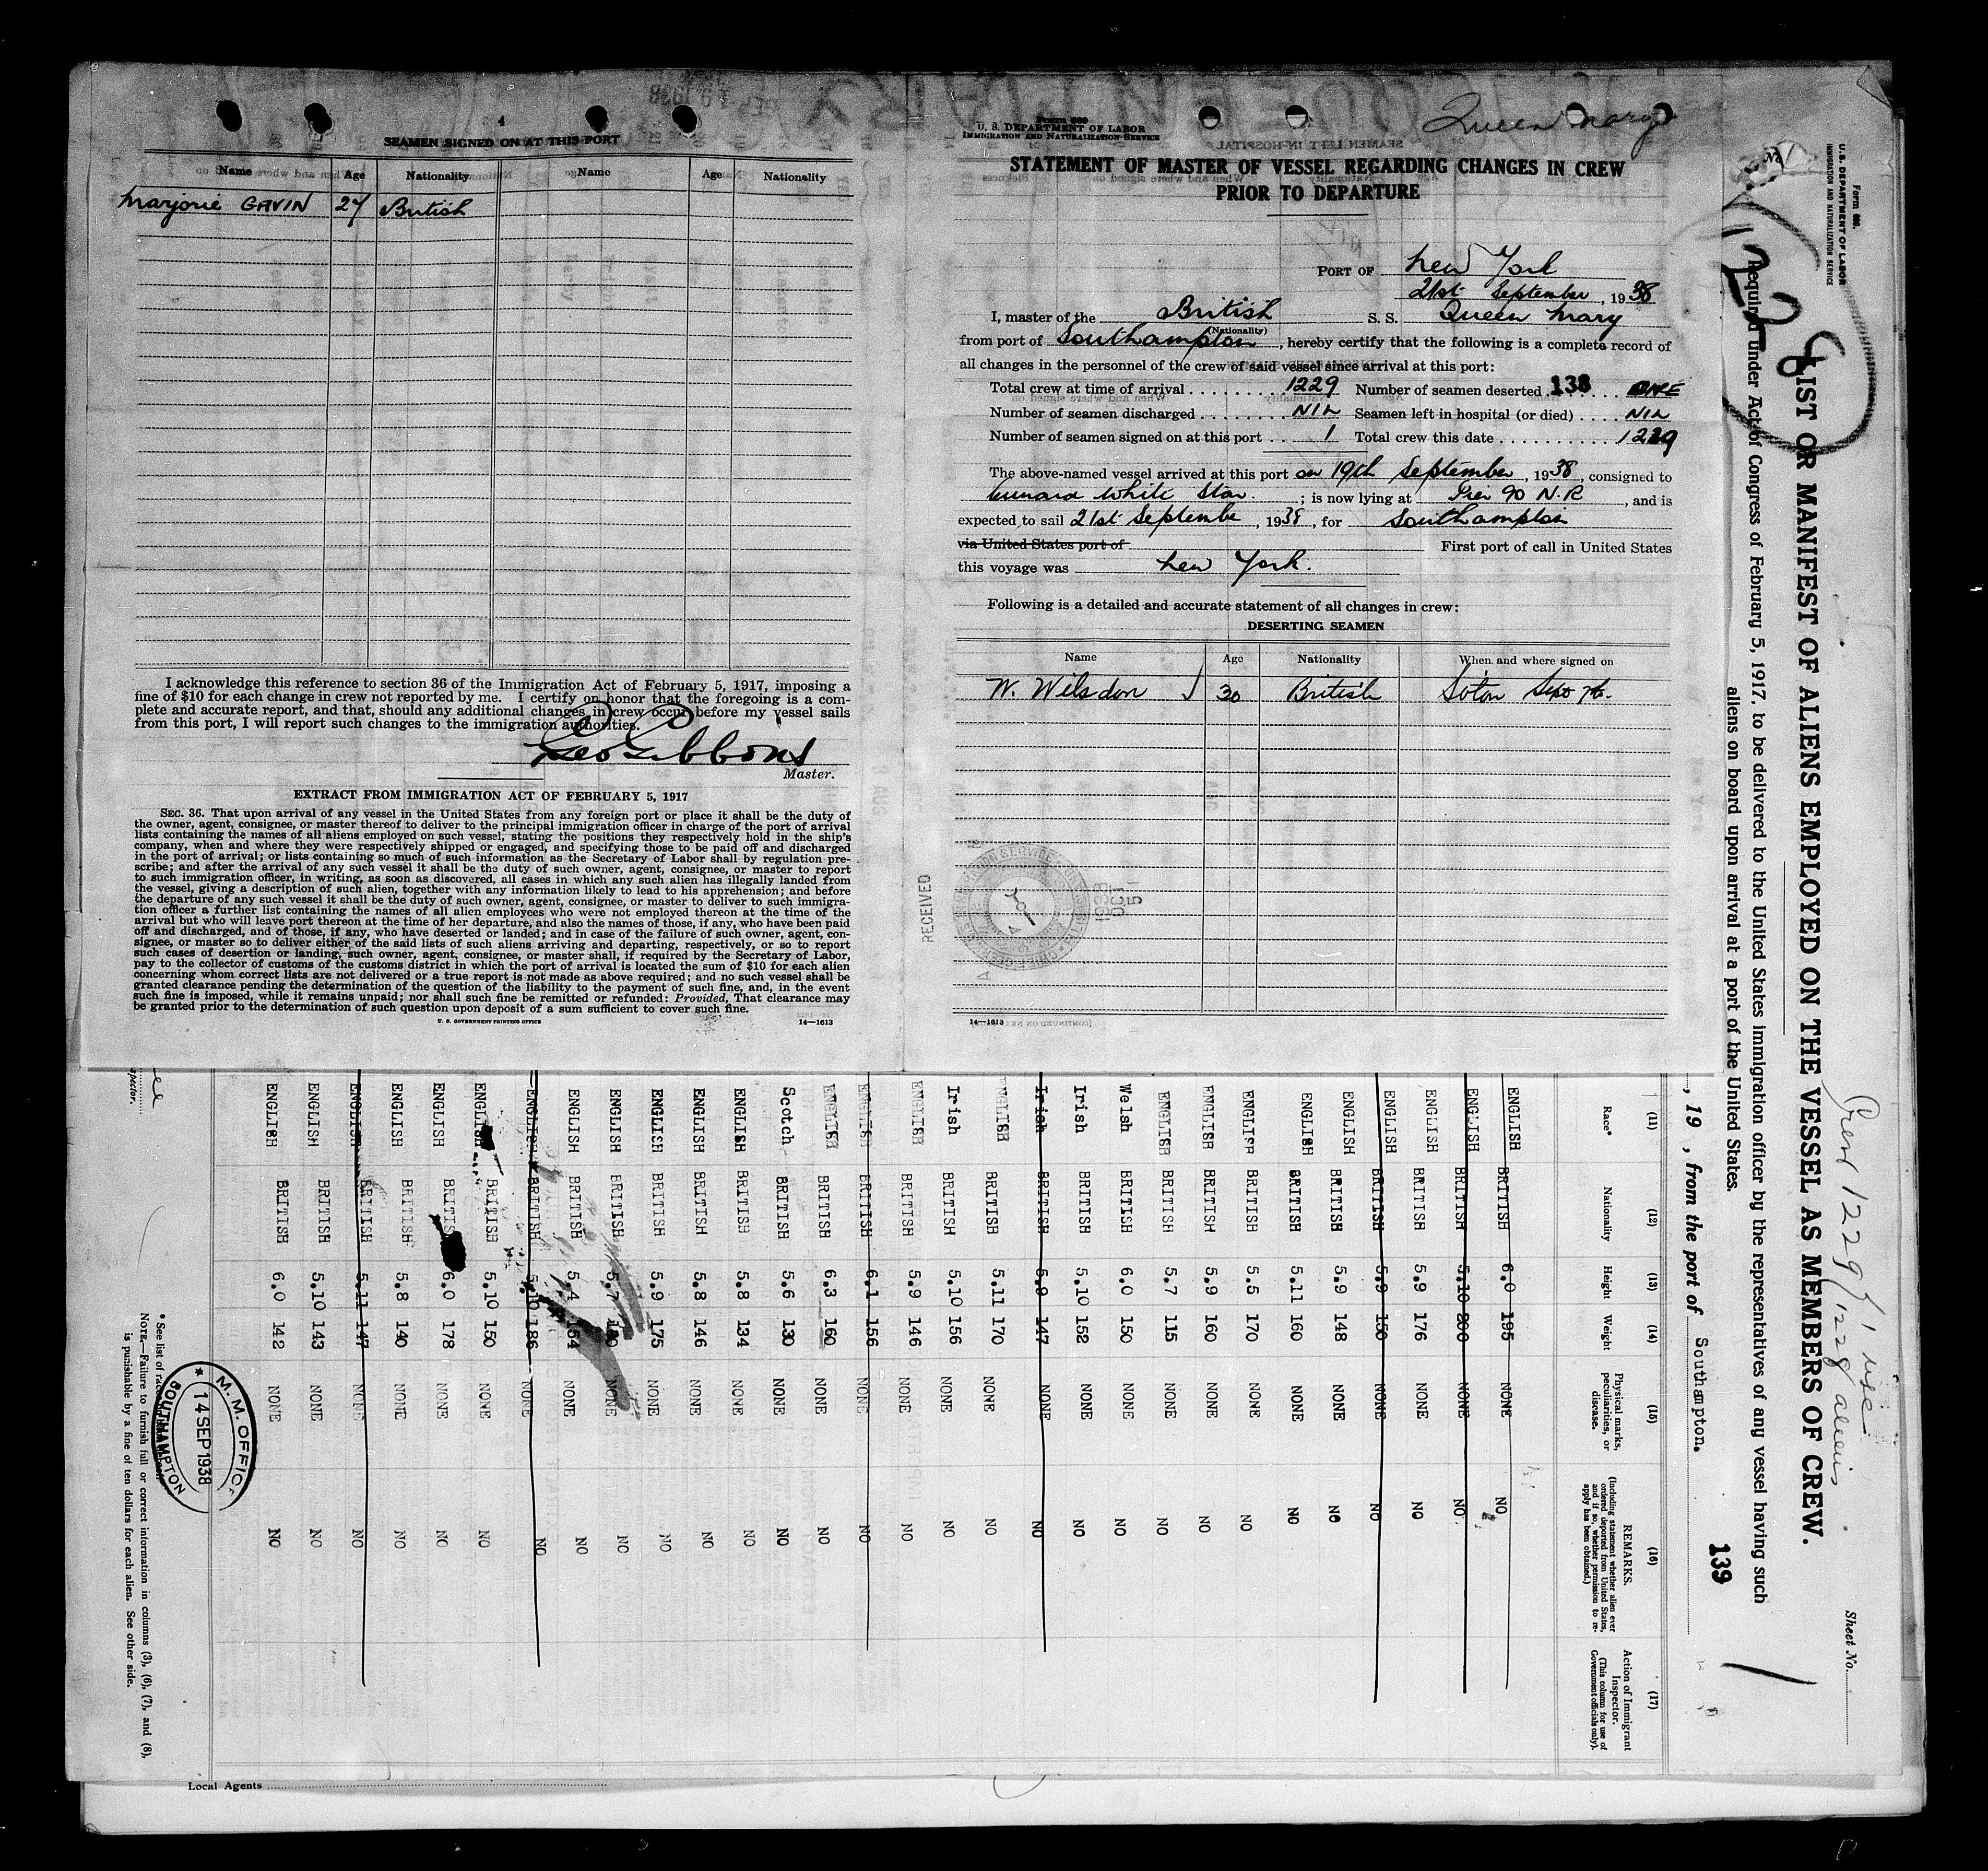 4
SEAMEN SIGNED ON AT THIS PORT
Name Age Nationality Name Age Nationality
Marjorie GAVIN 27 British
I acknowledge this reference to section 36 of the Immigration Act of February 5, 1917, imposing a
fine of $10 for each change in crew not reported by me. I certify on honor that the foregoing is a com-
plete and accurate report, and that, should any additional changes in crew occur before my vessel sails
from this port, I will report such changes to the immigration authorities.
Geo Gibbons
Master.
EXTRACT FROM IMMIGRATION ACT OF FEBRUARY 5, 1917
SEC. 36. That upon arrival of any vessel in the United States from any foreign port or place it shall be the duty of
the owner, agent, consignee, or master thereof to deliver to the principal immigration officer in charge of the port of arrival
lists containing the names of all aliens employed on such vessel, stating the positions they respectively hold in the ship's
company, when and where they were respectively shipped or engaged, and specifying those to be paid off and discharged
in the port of arrival; or lists containing so much of such information as the Secretary of Labor shall by regulation pre-
scribe; and after the arrival of any such vessel it shall be the duty of such owner, agent, consignee, or master to report
to such immigration officer, in writing, as soon as discovered, all cases in which any such alien has illegally landed from
the vessel, giving a description of such alien, together with any information likely to lead to his apprehension; and before
the departure of any such vessel it shall be the duty of such owner, agent, consignee, or master to deliver to such immigra-
tion officer a further list containing the names of all alien employees who were not employed thereon at the time of the
arrival but who will leave port thereon at the time of her departure, and also the names of those, if any, who have been paid
off and discharged, and of those, if any, who have deserted or landed; and in case of the failure of such owner, agent, con-
signee, or master so to deliver either of the said lists of such aliens arriving and departing, respectively, or so to report
such cases of desertion or landing, such owner, agent, consignee, or master shall, if required by the Secretary of Labor,
pay to the collector of customs of the customs district in which the port of arrival is located the sum of $10 for each alien
concerning whom correct lists are not delivered or a true report is not made as above required; and no such vessel shall be
granted clearance pending the determination of the question of the liability to the payment of such fine, and, in the event
such fine is imposed, while it remains unpaid; nor shall such fine be remitted or refunded: Provided, That clearance may
be granted prior to the determination of such question upon deposit of a sum sufficient to cover such fine.
U. S. GOVERNMENT PRINTING OFFICE 14—1613
Queen Mary
Form 689
U. S. DEPARTMENT OF LABOR
IMMIGRATION AND NATURALIZATION SERVICE
STATEMENT OF MASTER OF VESSEL REGARDING CHANGES IN CREW
PRIOR TO DEPARTURE
PORT OF New York
21st September, 1938
I, master of the British S. S. Queen Mary
(Nationality)
from port of Southampton, hereby certify that the following is a complete record of
all changes in the personnel of the crew of said vessel since arrival at this port:
Total crew at time of arrival 1229 Number of seamen deserted 138 ONE
Number of seamen discharged NIL Seamen left in hospital (or died) NIL
Number of seamen signed on at this port 1 Total crew this date 1229
The above-named vessel arrived at this port on 19th September, 1938, consigned to
Cunard White Star; is now lying at Pier 90 N.R, and is
expected to sail 21st September, 1938, for Southampton
via United States port of First port of call in United States
this voyage was New York.
Following is a detailed and accurate statement of all changes in crew:
DESERTING SEAMEN
Name Age Nationality When and where signed on
W. Wilsdon 30 British Soton Sept
RECEIVED
OCT 5 1938
14—1613
Form 680.
U. S. DEPARTMENT OF LABOR
IMMIGRATION AND NATURALIZATION SERVICE
Sheet No.
1228
Crew 1229/1 usc 1228 aliens
LIST OR MANIFEST OF ALIENS EMPLOYED ON THE VESSEL AS MEMBERS OF CREW.
Required under Act of Congress of February 5, 1917, to be delivered to the United States immigration officer by the representatives of any vessel having such
aliens on board upon arrival at a port of the United States.
139
, 19 , from the port of Southampton.
(11) (12) (13) (14) (15) (16) (17)
Race* Nationality Height Weight Physical marks, peculiarities, or disease. REMARKS. (Including statement whether alien ever ordered deported from United States, and if so, whether permission to re-apply has been obtained.) Action of Immigrant Inspector. (This column for use of Government officials only).
ENGLISH BRITISH 6.0 195 NONE NO
ENGLISH BRITISH 5.10 200 NONE NO
ENGLISH BRITISH 5.9 176 NONE NO
ENGLISH BRITISH 5.9 150 NONE NO
ENGLISH BRITISH 5.9 148 NONE NO
ENGLISH BRITISH 5.11 160 NONE NO
ENGLISH BRITISH 5.5 170 NONE NO
ENGLISH BRITISH 5.9 160 NONE NO
ENGLISH BRITISH 5.7 115 NONE NO
Welsh BRITISH 6.0 150 NONE NO
Irish BRITISH 5.10 152 NONE NO
Irish BRITISH 5.9 147 NONE NO
ENGLISH BRITISH 5.11 170 NONE NO
Irish BRITISH 5.10 156 NONE NO
ENGLISH BRITISH 5.9 146 NONE NO
ENGLISH BRITISH 6.1 156 NONE NO
ENGLISH BRITISH 6.3 160 NONE NO
Scotch BRITISH 5.6 130 NONE NO
ENGLISH BRITISH 5.8 134 NONE NO
ENGLISH BRITISH 5.8 146 NONE NO
ENGLISH BRITISH 5.9 175 NONE NO
ENGLISH BRITISH 5.7 NONE NO
ENGLISH BRITISH 5.4 154 NONE NO
ENGLISH BRITISH 5.10 186 NONE NO
ENGLISH BRITISH 5.10 150 NONE NO
ENGLISH BRITISH 6.0 178 NONE NO
ENGLISH BRITISH 5.8 140 NONE NO
ENGLISH BRITISH 5.11 147 NONE NO
ENGLISH BRITISH 5.10 143 NONE NO
ENGLISH BRITISH 6.0 142 NONE NO
M. M. OFFICE
14 SEP 1938
SOUTHAMPTON
* See list of races
NOTE.—Failure to furnish full or correct information in columns (3), (6), (7), and (8),
is punishable by a fine of ten dollars for each alien. See other side.
Local Agents